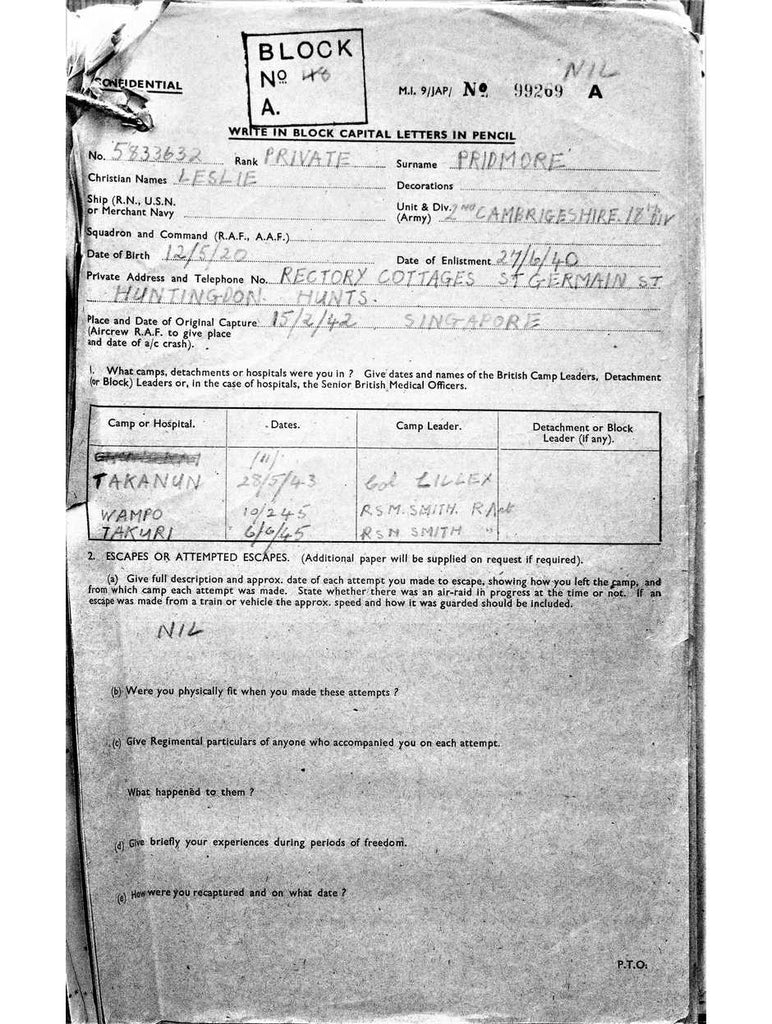 BLOCK
No 48
A.
CONFIDENTIAL
NIL
M.I. 9/JAP/ No 99269 A
WRITE IN BLOCK CAPITAL LETTERS IN PENCIL
No. 5833632 Rank PRIVATE Surname PRIDMORE
Christian Names LESLIE Decorations
Ship (R.N., U.S.N. or Merchant Navy
Unit & Div. (Army) 2ND CAMBRIGESHIRE. 18 DIV
Squadron and Command (R.A.F., A.A.F.)
Date of Birth 12/5/20 Date of Enlistment 27/6/40
Private Address and Telephone No. RECTORY COTTAGES ST GERMAIN ST
HUNTINGDON. HUNTS.
Place and Date of Original Capture 15/2/42 SINGAPORE
(Aircrew R.A.F. to give place
and date of a/c crash).
1. What camps, detachments or hospitals were you in ? Give dates and names of the British Camp Leaders, Detachment
(or Block) Leaders or, in the case of hospitals, the Senior British Medical Officers.
Camp or Hospital. Dates. Camp Leader. Detachment or Block
Leader (if any).
TAKANUN 28/5/43 Col LILLEX
WAMPO 10/2/45 RSM. SMITH.
TAKURI 6/6/45 RSM SMITH "
2. ESCAPES OR ATTEMPTED ESCAPES. (Additional paper will be supplied on request if required).
(a) Give full description and approx. date of each attempt you made to escape, showing how you left the camp, and
from which camp each attempt was made. State whether there was an air-raid in progress at the time or not. If an
escape was made from a train or vehicle the approx. speed and how it was guarded should be included.
NIL
(b) Were you physically fit when you made these attempts ?
(c) Give Regimental particulars of anyone who accompanied you on each attempt.
What happened to them ?
(d) Give briefly your experiences during periods of freedom.
(e) How were you recaptured and on what date ?
P.T.O.